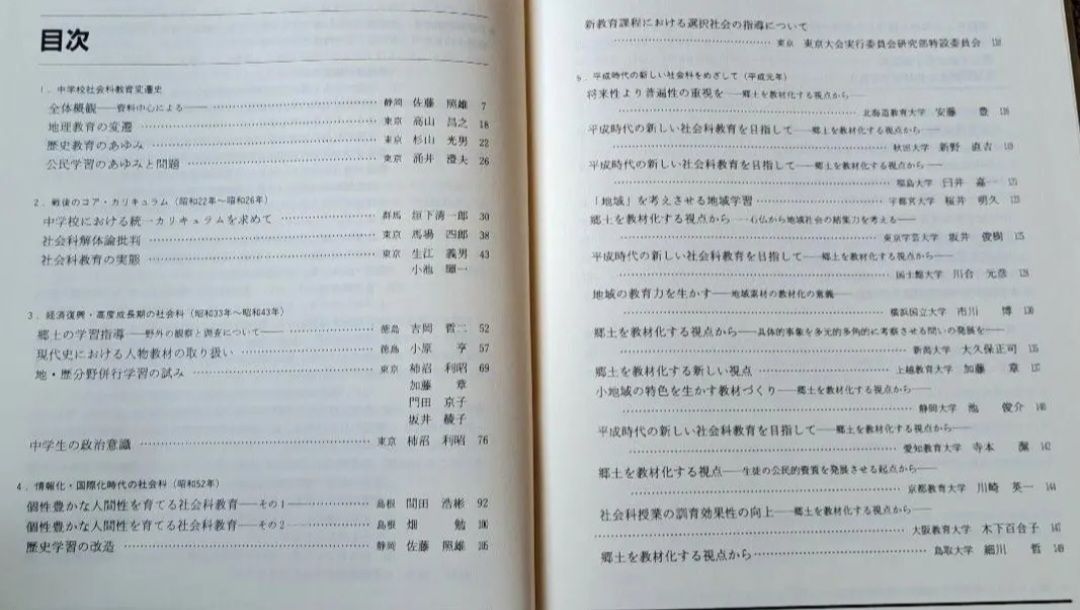 目次
1. 中学校社会科教育変遷史
全体概観――資料中心による―― 静岡 佐藤 照雄 7
地理教育の変遷 東京 高山 昌之 18
歴史教育のあゆみ 東京 杉山 光男 22
公民学習のあゆみと問題 東京 涌井 澄夫 26
2. 戦後のコア・カリキュラム(昭和22年～昭和26年)
中学校における統一カリキュラムを求めて 群馬 垣下清一郎 30
社会科解体論批判 東京 馬場 四郎 38
社会科教育の実態 東京 生江 義男 43
小池 一
3. 経済復興・高度成長期の社会科(昭和33年～昭和43年)
郷土の学習指導――野外の観察と調査について―― 徳島 吉岡 哲二 52
現代史における人物教材の取り扱い 徳島 小原 亨 57
地・歴分野併行学習の試み 東京 柿沼 利昭 69
加藤 章
門田 京子
坂井 綾子
中学生の政治意識 東京 柿沼 利昭 76
4. 情報化・国際化時代の社会科(昭和52年)
個性豊かな人間性を育てる社会科教育――その1―― 島根 間田 浩彬 92
個性豊かな人間性を育てる社会科教育――その2―― 島根 畑 勉 100
歴史学習の改造 静岡 佐藤 照雄 105
新教育課程における選択社会の指導について
東京 東京大会実行委員会研究部特設委員会
5. 平成時代の新しい社会科をめざして(平成元年)
将来性より普遍性の重視を――郷土を教材化する視点から――
北海道教育大学 安藤 豊
平成時代の新しい社会科教育を目指して――郷土を教材化する視点から――
秋田大学 新野 直吉
平成時代の新しい社会科教育を目指して――郷土を教材化する視点から――
福島大学 臼井 嘉一
「地域」を考えさせる地域学習 宇都宮大学 桜井 明久
郷土を教材化する視点から――心仏から地域社会の結集力を考える――
東京学芸大学 坂井 俊樹
平成時代の新しい社会科教育を目指して――郷土を教材化する視点から――
国士舘大学 川合 元彦
地域の教育力を生かす――地域素材の教材化の意義――
横浜国立大学 市川 博
郷土を教材化する視点から――具体的事象を多元的多角的に考察させる問いの発展を――
新潟大学 大久保正司
郷土を教材化する新しい視点 上越教育大学 加藤 章
小地域の特色を生かす教材づくり――郷土を教材化する視点から――
静岡大学 池 俊介 140
平成時代の新しい社会科教育を目指して――郷土を教材化する視点から――
愛知教育大学 寺本 潔 142
郷土を教材化する視点――生徒の公民的資質を発展させる起点から――
京都教育大学 川崎 英一 144
社会科授業の訓育効果性の向上――郷土を教材化する視点から――
大阪教育大学 木下百合子 147
郷土を教材化する視点から 鳥取大学 細川 哲 149